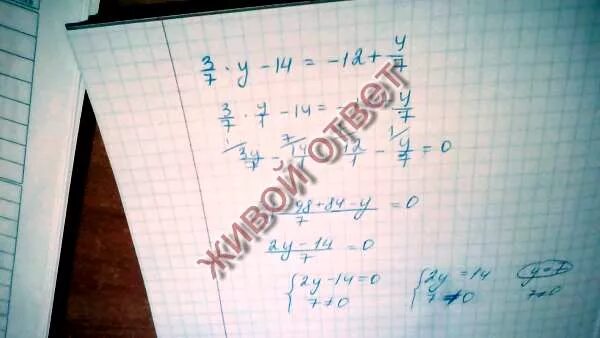 3/7 · y - 14 = -12 + y/7
3/7 · y/1 - 14 = - y/7
3y/7 - 14/1 12/1 - y/7 = 0
98 + 84 - y / 7 = 0
2y - 14 / 7 = 0
{2y - 14 = 0 {2y = 14
7 ≠ 0 7 ≠ 0 7 ≠ 0
ЖИВОЙ ОТВЕТ